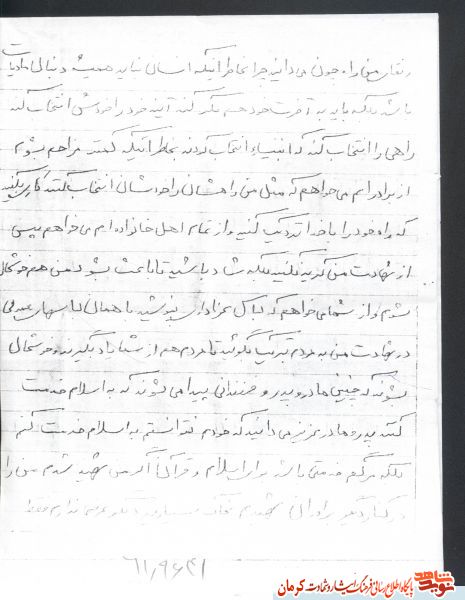 رفتار من راه چون می دانید چرا بخاطر اینکه انسان نباید همیشه دنبال مادیات
باشد بلکه باید به آخرت خود هم فکر کند آینده خود را خودش انتخاب کند
راهی را انتخاب کند که انبیاء انتخاب کردند بخاطر اینکه کمتر مزاحم بشوم
از برادرانم می خواهم که مثل من راهشان را خودشان انتخاب کنند کاری بکنند
که راه خود را با خدا نزدیک کنید و از تمام اهل خانواده ام می خواهم پس
از شهادت من گریه نکنید بلکه شاد باشید تا باعث بشود من هم خوشحال
شوم و از شما می خواهم که لباس عزاداری نپوشید با همان لباسهای عید
در شهادت من به مردم تبریک بگوئید تا مردم هم از شما یاد بگیرند و خوشحال
بشوند که چنین مادر و پدر و فرزندانی پیدا می شوند که به اسلام خدمت
کنند پدر و مادر عزیز می دانید که خودم نتوانستم به اسلام خدمت کنم
بلکه مرگم خدمتی باشد برای اسلام و قرآن اگر من شهید شدم من را
در کنار دیگر برادران شهیدم
۶۱٫۹٫۶
نوید شاهد
پایگاه اطلاع رسانی فرهنگ ایثار و شهادت کرمان